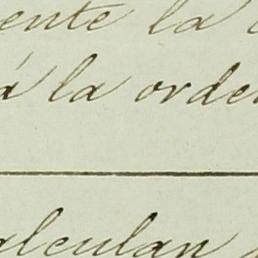 ente la
á la orden
alculan